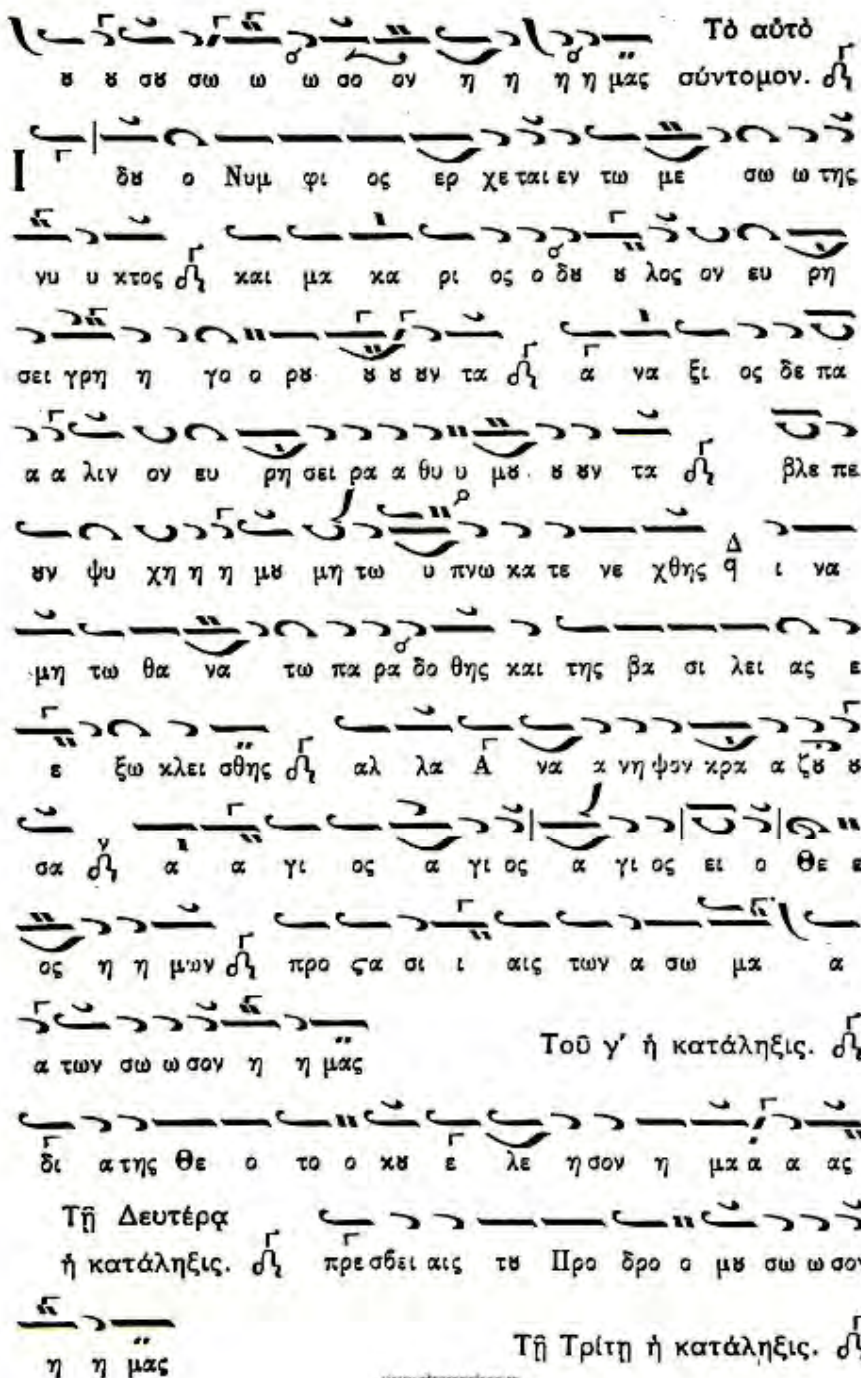 ȣ ȣ σȣ σω ω ω σο ον η η η η μας Τὸ αὐτὸ σύντομον.
Ι δȣ ο Νυμ φι ος ερ χε ται εν τω με σω ω της
νυ υ κτος και μα κα ρι ος ο δȣ ȣ λος ον ευ ρη
σει γρη η γο ο ρȣ ȣ ȣ ȣν τα α να ξι ος δε πα
α α λιν ον ευ ρη σει ρα α θυ υ μȣ ȣ ȣν τα βλε πε
ȣν ψυ χη η η μȣ μη τω υ πνω κα τε νε χθης Δ q ι να
μη τω θα να τω πα ρα δο θης και της βα σι λει ας ε
ε ξω κλει σθης αλ λα Α να α νη ψον κρα α ζȣ ȣ
σα α α γι ος α γι ος α γι ος ει ο Θε ε
ος η η μων προ ϛα σι ι αις των α σω μα α
α των σω ω σον η η μας Τοῦ γ' ἡ κατάληξις.
δι α της Θε ο το ο κȣ ε λε η σον η μα α α ας
Τῇ Δευτέρᾳ
ἡ κατάληξις. πρε σβει αις τȣ Προ δρο ο μȣ σω ω σον
η η μας Τῇ Τρίτῃ ἡ κατάληξις.